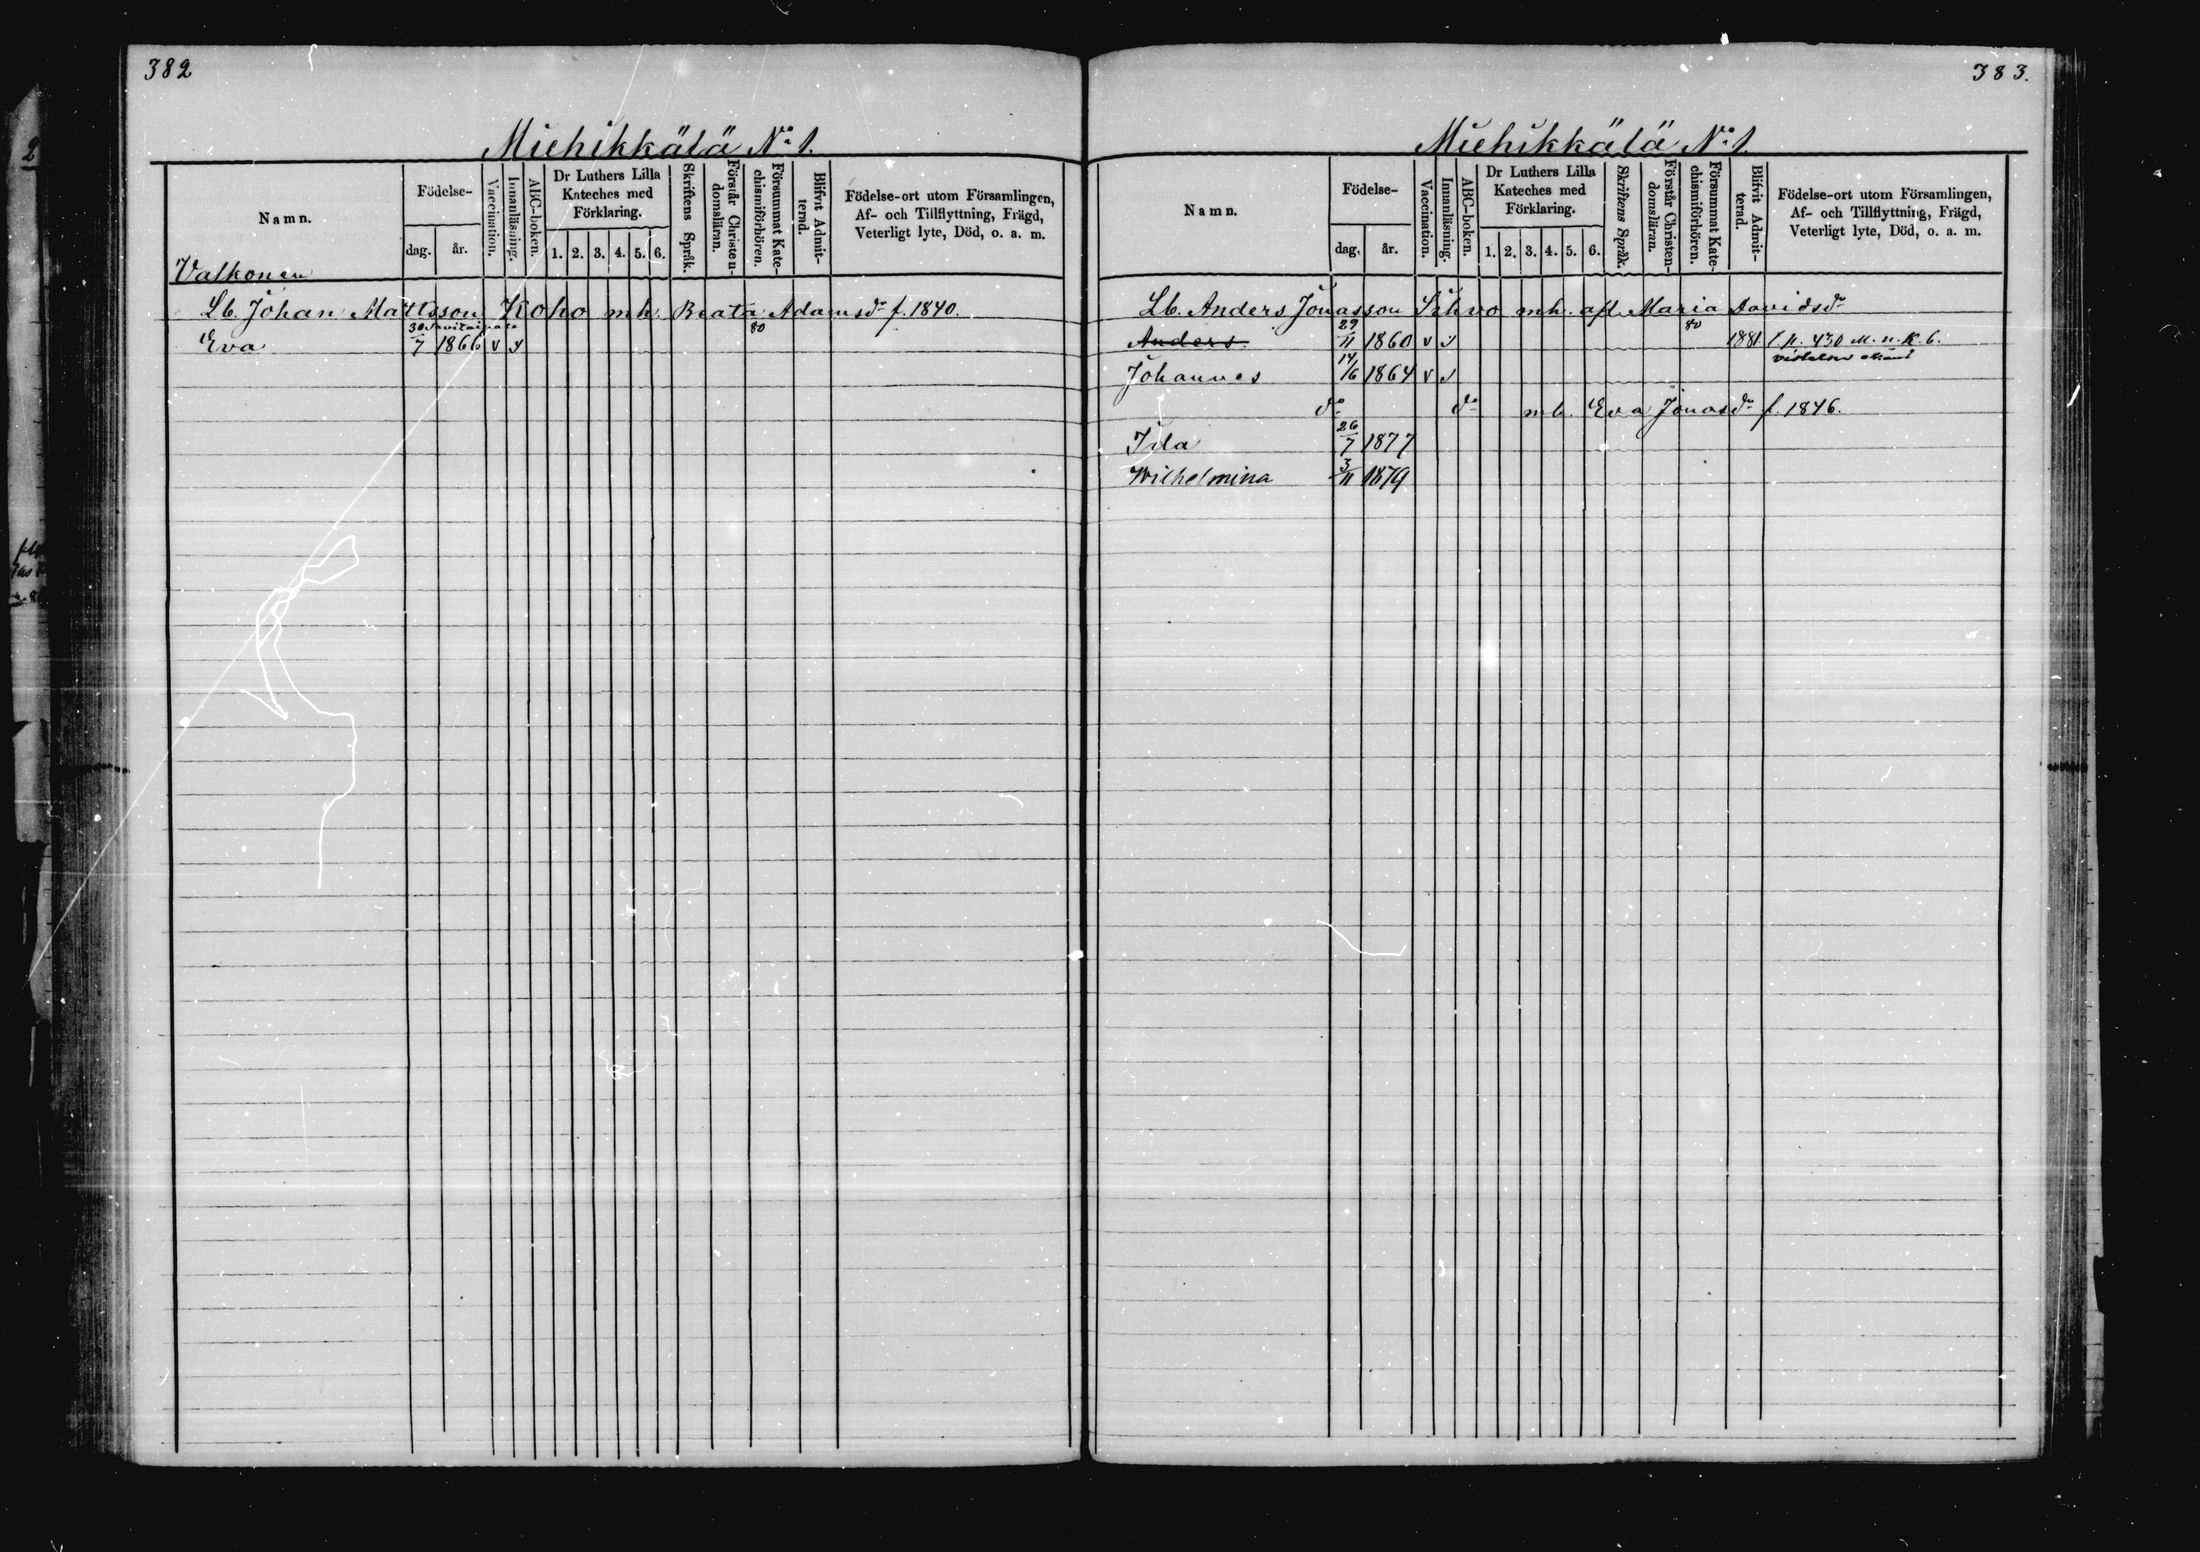 382
Miehikkälä No 1.
Namn.
Födelse-
dag.
år.
Vaccination.
Innanläsning.
ABC-boken.
Dr Luthers Lilla
Kateches med
Förklaring.
1. 2. 3. 4. 5. 6.
Skriftens Språk.
Förstår Christen-
domsläran.
Försummat Kate-
chismiförhören.
Blifvit Admit-
terad.
Födelse-ort utom Församlingen,
Af- och Tillflyttning, Frägd,
Veterligt lyte, Död, o. a. m.
Valkonen
Lb. Johan Mattsson Koho m h. Beata Adamsdr f. 1840.
Savitaipale
Eva 30/7 1866 v 80
383.
Miehikkälä No 1.
Namn.
Födelse-
dag.
år.
Vaccination.
Innanläsning.
ABC-boken.
Dr Luthers Lilla
Kateches med
Förklaring.
1. 2. 3. 4. 5. 6.
Skriftens Språk.
Förstår Christen-
domsläran.
Försummat Kate-
chismiförhören.
Blifvit Admit-
terad.
Födelse-ort utom Församlingen,
Af- och Tillflyttning, Frägd,
Veterligt lyte, Död, o. a. m.
Lb. Anders Jonasson m h. afl. Maria Davidsdr
Anders 29/11 1860 v 80 1881. f. p. 430 M. n. K. 6.
Johannes 14/6 1864 v
do do m h. Eva Jonasdr f. 1846.
Ida 26/7 1877
Wilhelmina 3/11 1879